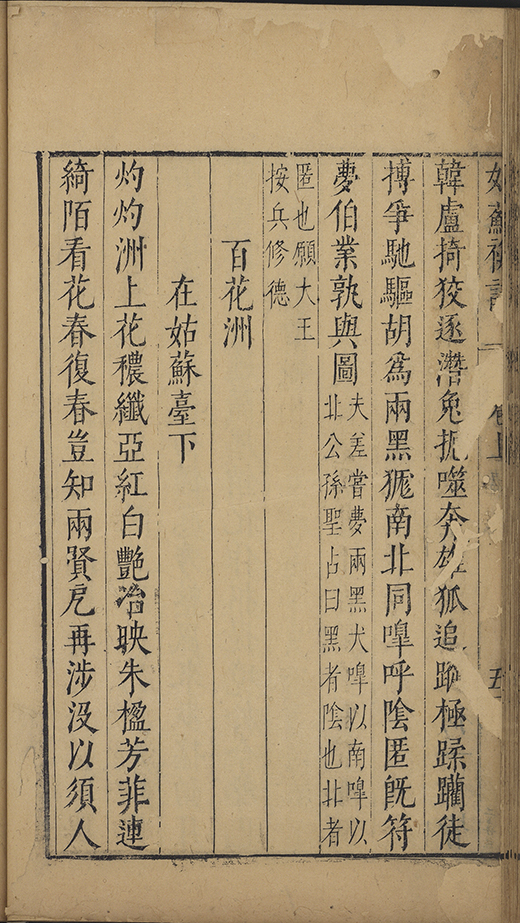 蘇 卷上 五
韓盧掎狡逐潛兔噬雄狐追蹤極蹂躪徒
搏爭馳驅胡爲兩黑南北同嘷呼陰匿旣符
夢伯業孰與圖
夫差嘗夢兩黑犬嘷以南嘷以
北公孫聖占曰黑者陰也北者
匿也願大王
按兵修德
百花洲
在姑蘇臺下
灼灼洲上花穠纖亞紅白艷冶映朱楹芳菲連
綺陌看花春復春豈知兩賢戹再涉没以須人